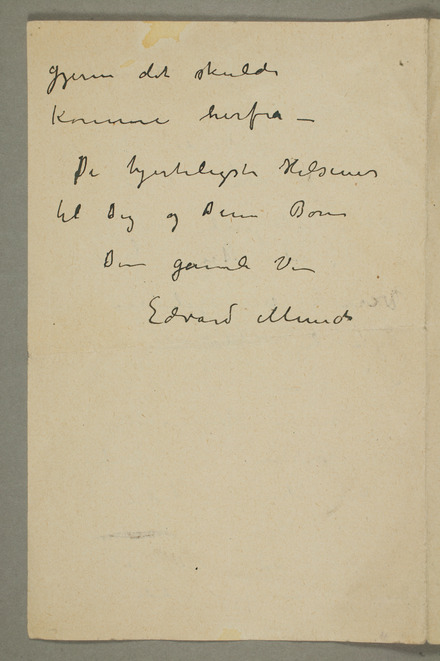 gjerne det skulde
komme herfra —
De hjerteligste Hilsener
til Dig og Dine Børn
Din gamle Ven
Edvard Munch